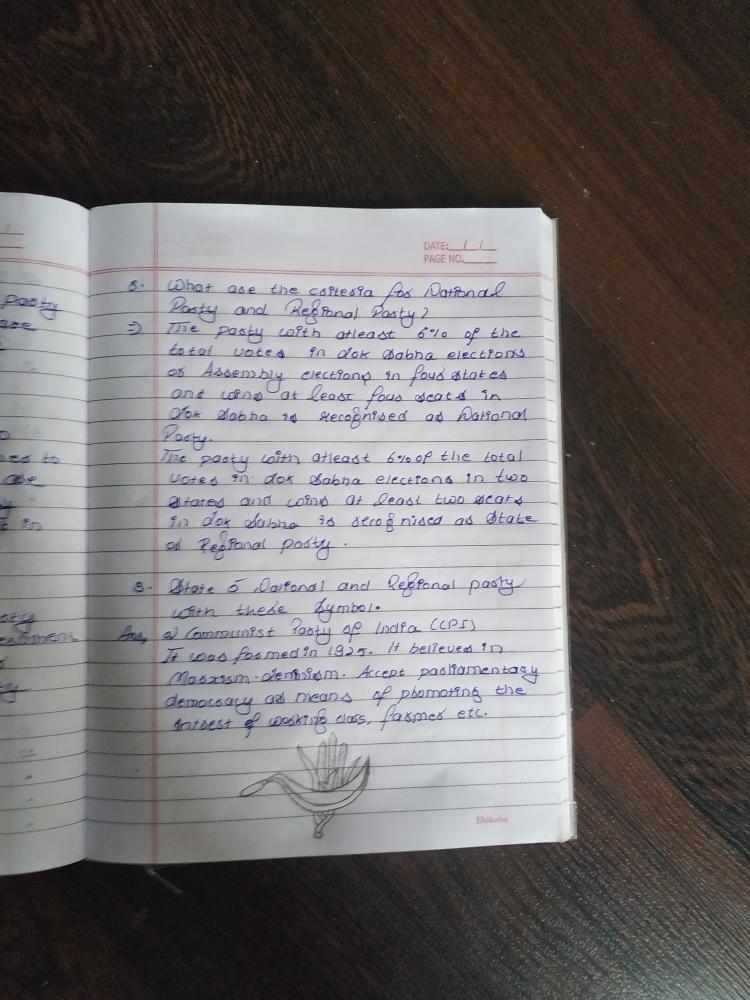 DATE: / /
PAGE NO.
Q. What are the criteria for National
Party and Regional Party?
⇒ The party with atleast 6% of the
total votes in Lok Sabha elections
or Assembly elections in four states
and wins at least four seats in
Lok Sabha is recognised as National
Party.
The party with atleast 6% of the total
votes in Lok Sabha elections in two
states and wins at least two seats
in Lok Sabha is recognised as State
or Regional party.
Q. State 5 National and Regional party
with these Symbol.
Ans, a) Communist Party of India (CPI)
It was formed in 1925. It believes in
Marxism-Leninism. Accept parliamentary
democracy as means of promoting the
intrest of working class, farmer etc.
Shiksha
party
are
to
are
in